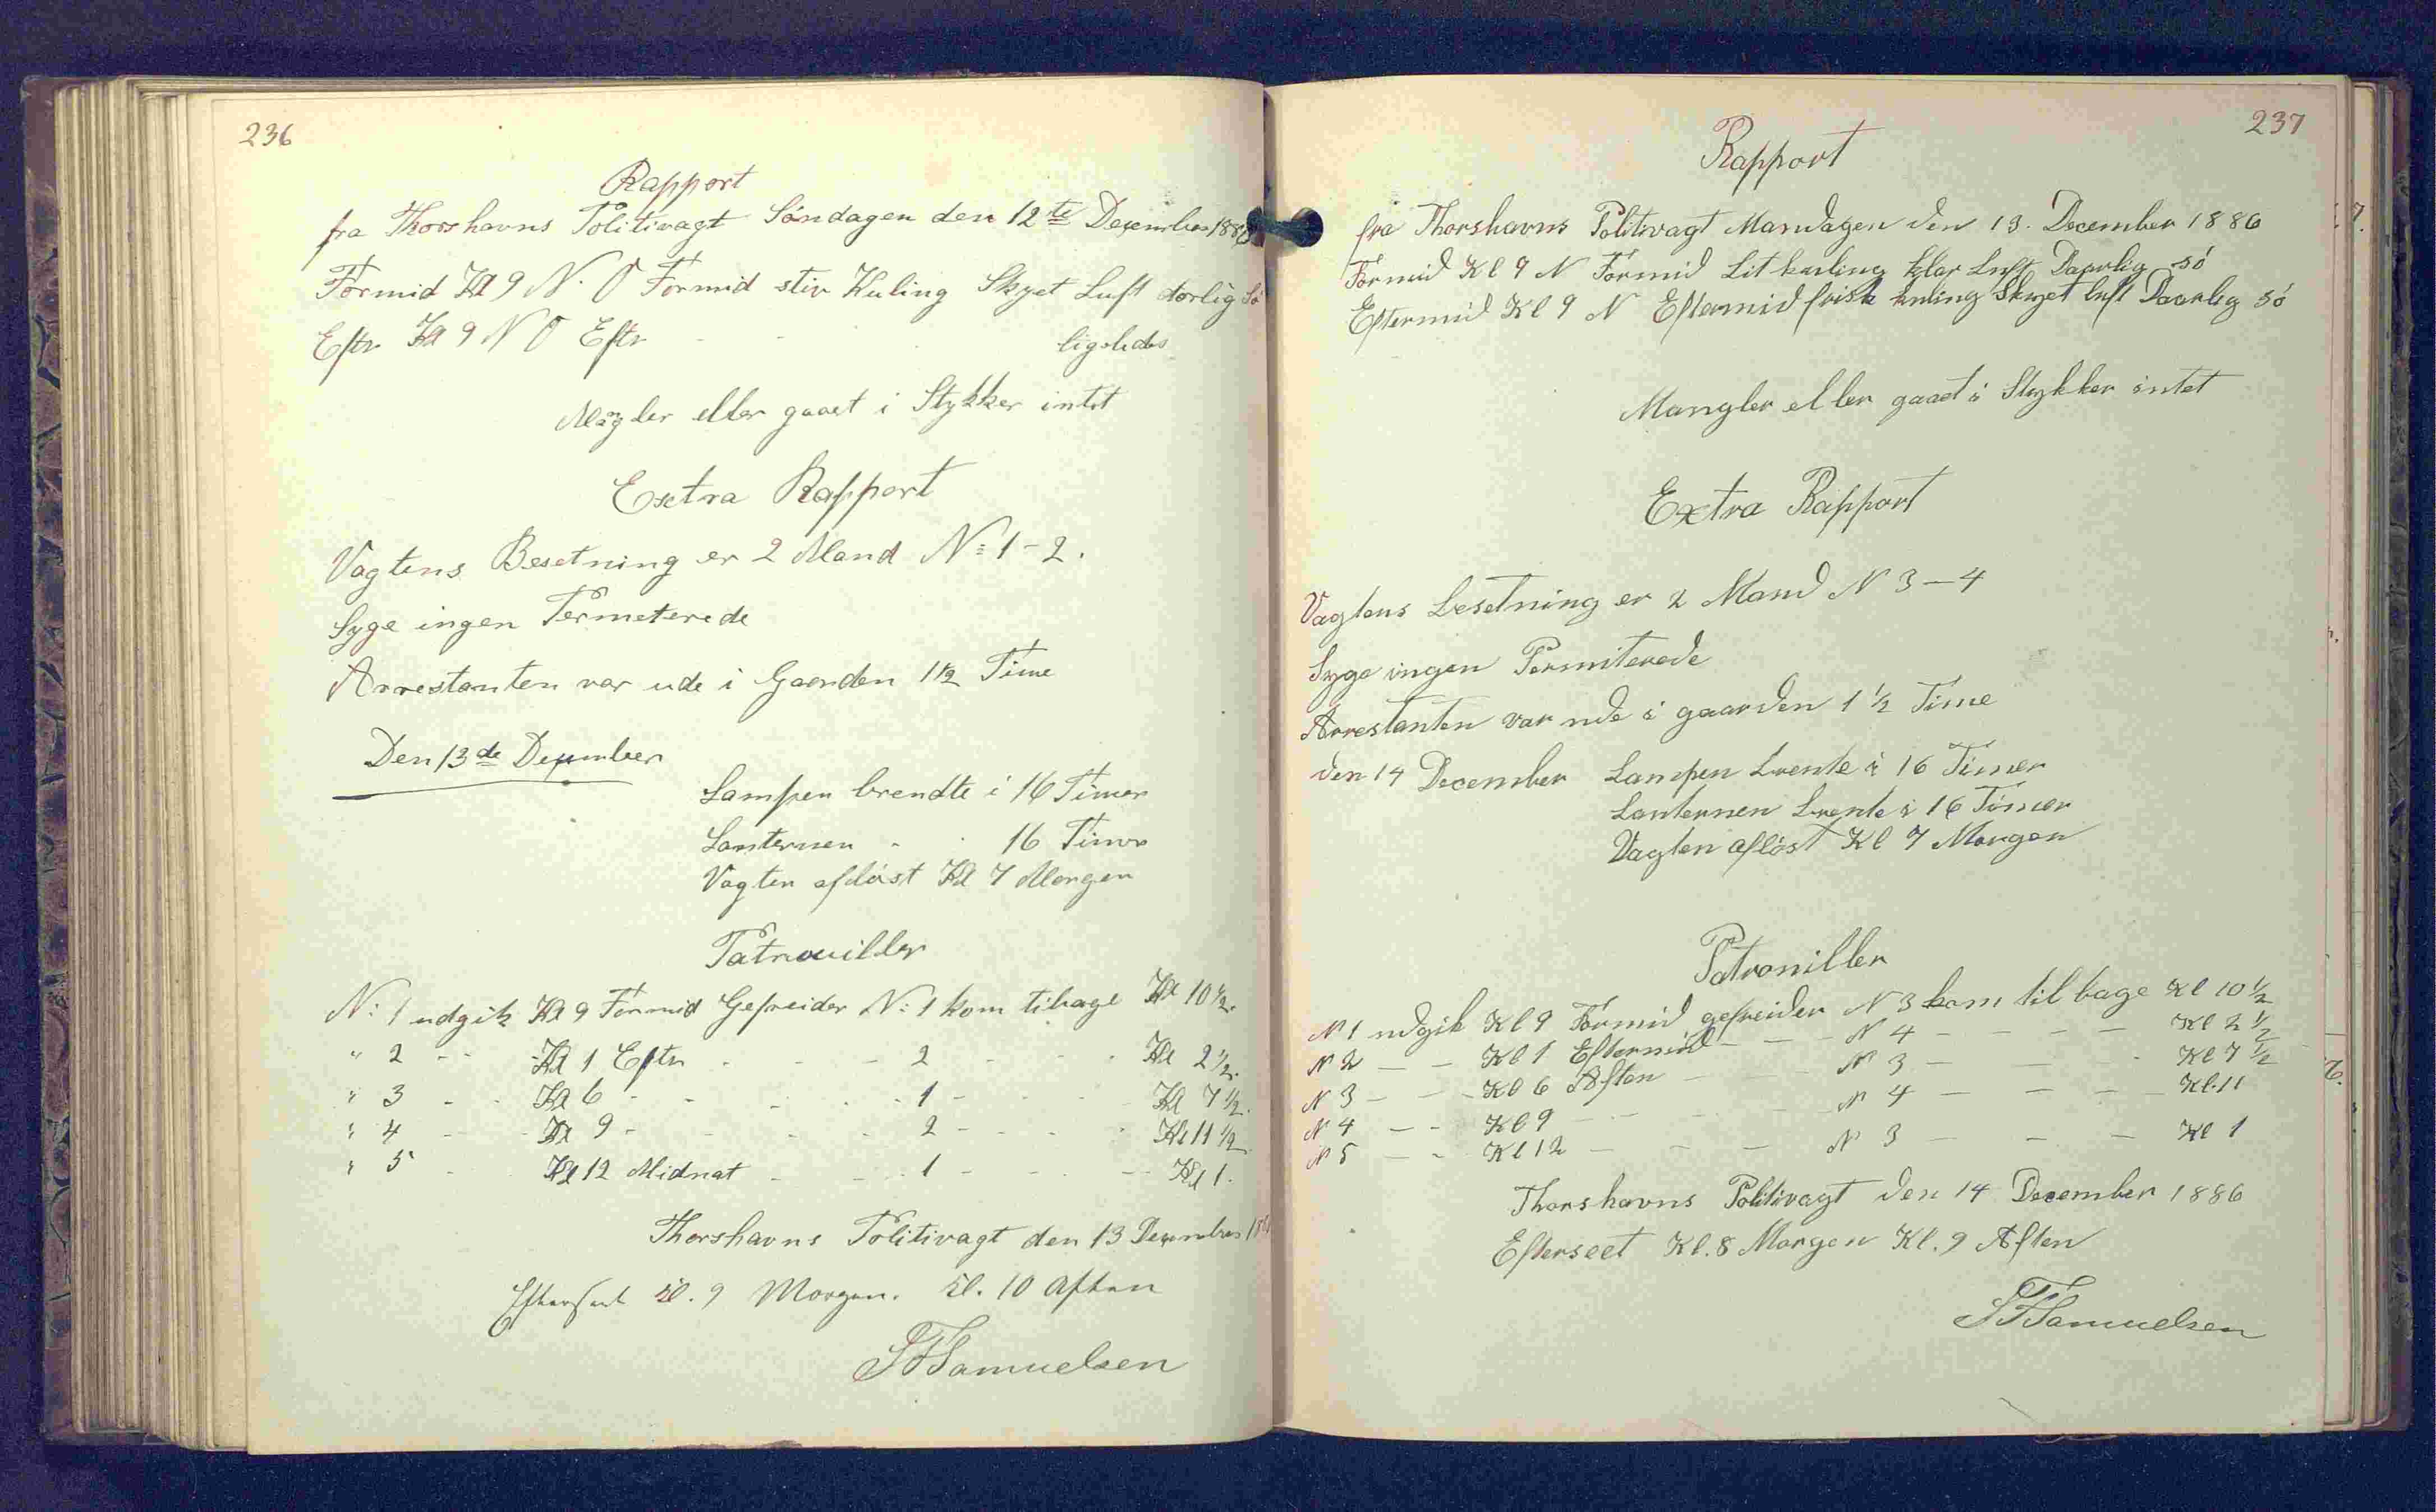 236
Rapport
fra Thorshavns Politivagt Söndagen den 12te December 1886
Formid Kl 9 N. O Formid stiv Kuling Skyet Luft dorlig Sö
Eftr Kl 9 N O Eftr - - ligeledes
Mangler eller gaaet i Stykker intet
Exstra Rapport
Vagtens Besetning er 2 Mand No 1-2.
Syge ingen Permeterede
Arrestanten var ude i Gaarden 1 1/2 Time
Den 13de December
Lampen brendte i 16 Timer
Lanternen - - 16 Timer
Vagten aflöst Kl 7 Morgen
Patrouiller
N: 1 udgik Kl 9 Formid Gefreider N: 1 kom tibage Kl 10 1/2.
" 2 - - Kl 1 Eftr - - - 2 - - - Kl 2 1/2.
" 3 - - Kl 6 - - - - - 1 - - - Kl 7 1/2.
" 4 - - Kl 9 - - - - 2 - - - - Kl 11 1/2
" 5 - Kl 12 Midnat - - - 1 - - - Kl 1.
Thorshavns Politivagt den 13 December
Efterseet Kl. 9 Morgen. Kl. 10 Aften
Samuelsen
237
Rapport
fra Thorshavns Politivagt Mandagen den 13. December 1886
Formid Kl 9 N Formid Lit kuling klar Luft Daarlig sö
Eftermid Kl 9 N Eftermid frisk kuling Skyet luft Daarlig sö
Mangler eller gaaet i Stykker intet
Extra Rapport
Vagtens besetning er 2 Mand N 3-4
Syge ingen Permiterede
Arrestanten var ude i gaarden 1 1/2 Time
den 14 December Lampen brente i 16 Timer
Lanternen brente i 16 Timer
Vagten aflöst Kl 7 Morgen
Patrouiller
N 1 udgik Kl 9 Formid gefreider N 3 kom tilbage Kl 10 1/2
N 2 - - Kl 1 Eftermid - - - N 4 - - - - Kl 2 1/2
N 3 - - - Kl 6 Aften - - - N 3 - - - Kl 7 1/2
N 4 - - Kl 9 - - - - N 4 - - - Kl. 11
N 5 - - Kl 12 - - - N 3 - - - Kl 1
Thorshavns Politivagt den 14 December 1886
Efterseet Kl. 8 Morgen Kl. 9 Aften
Samuelsen